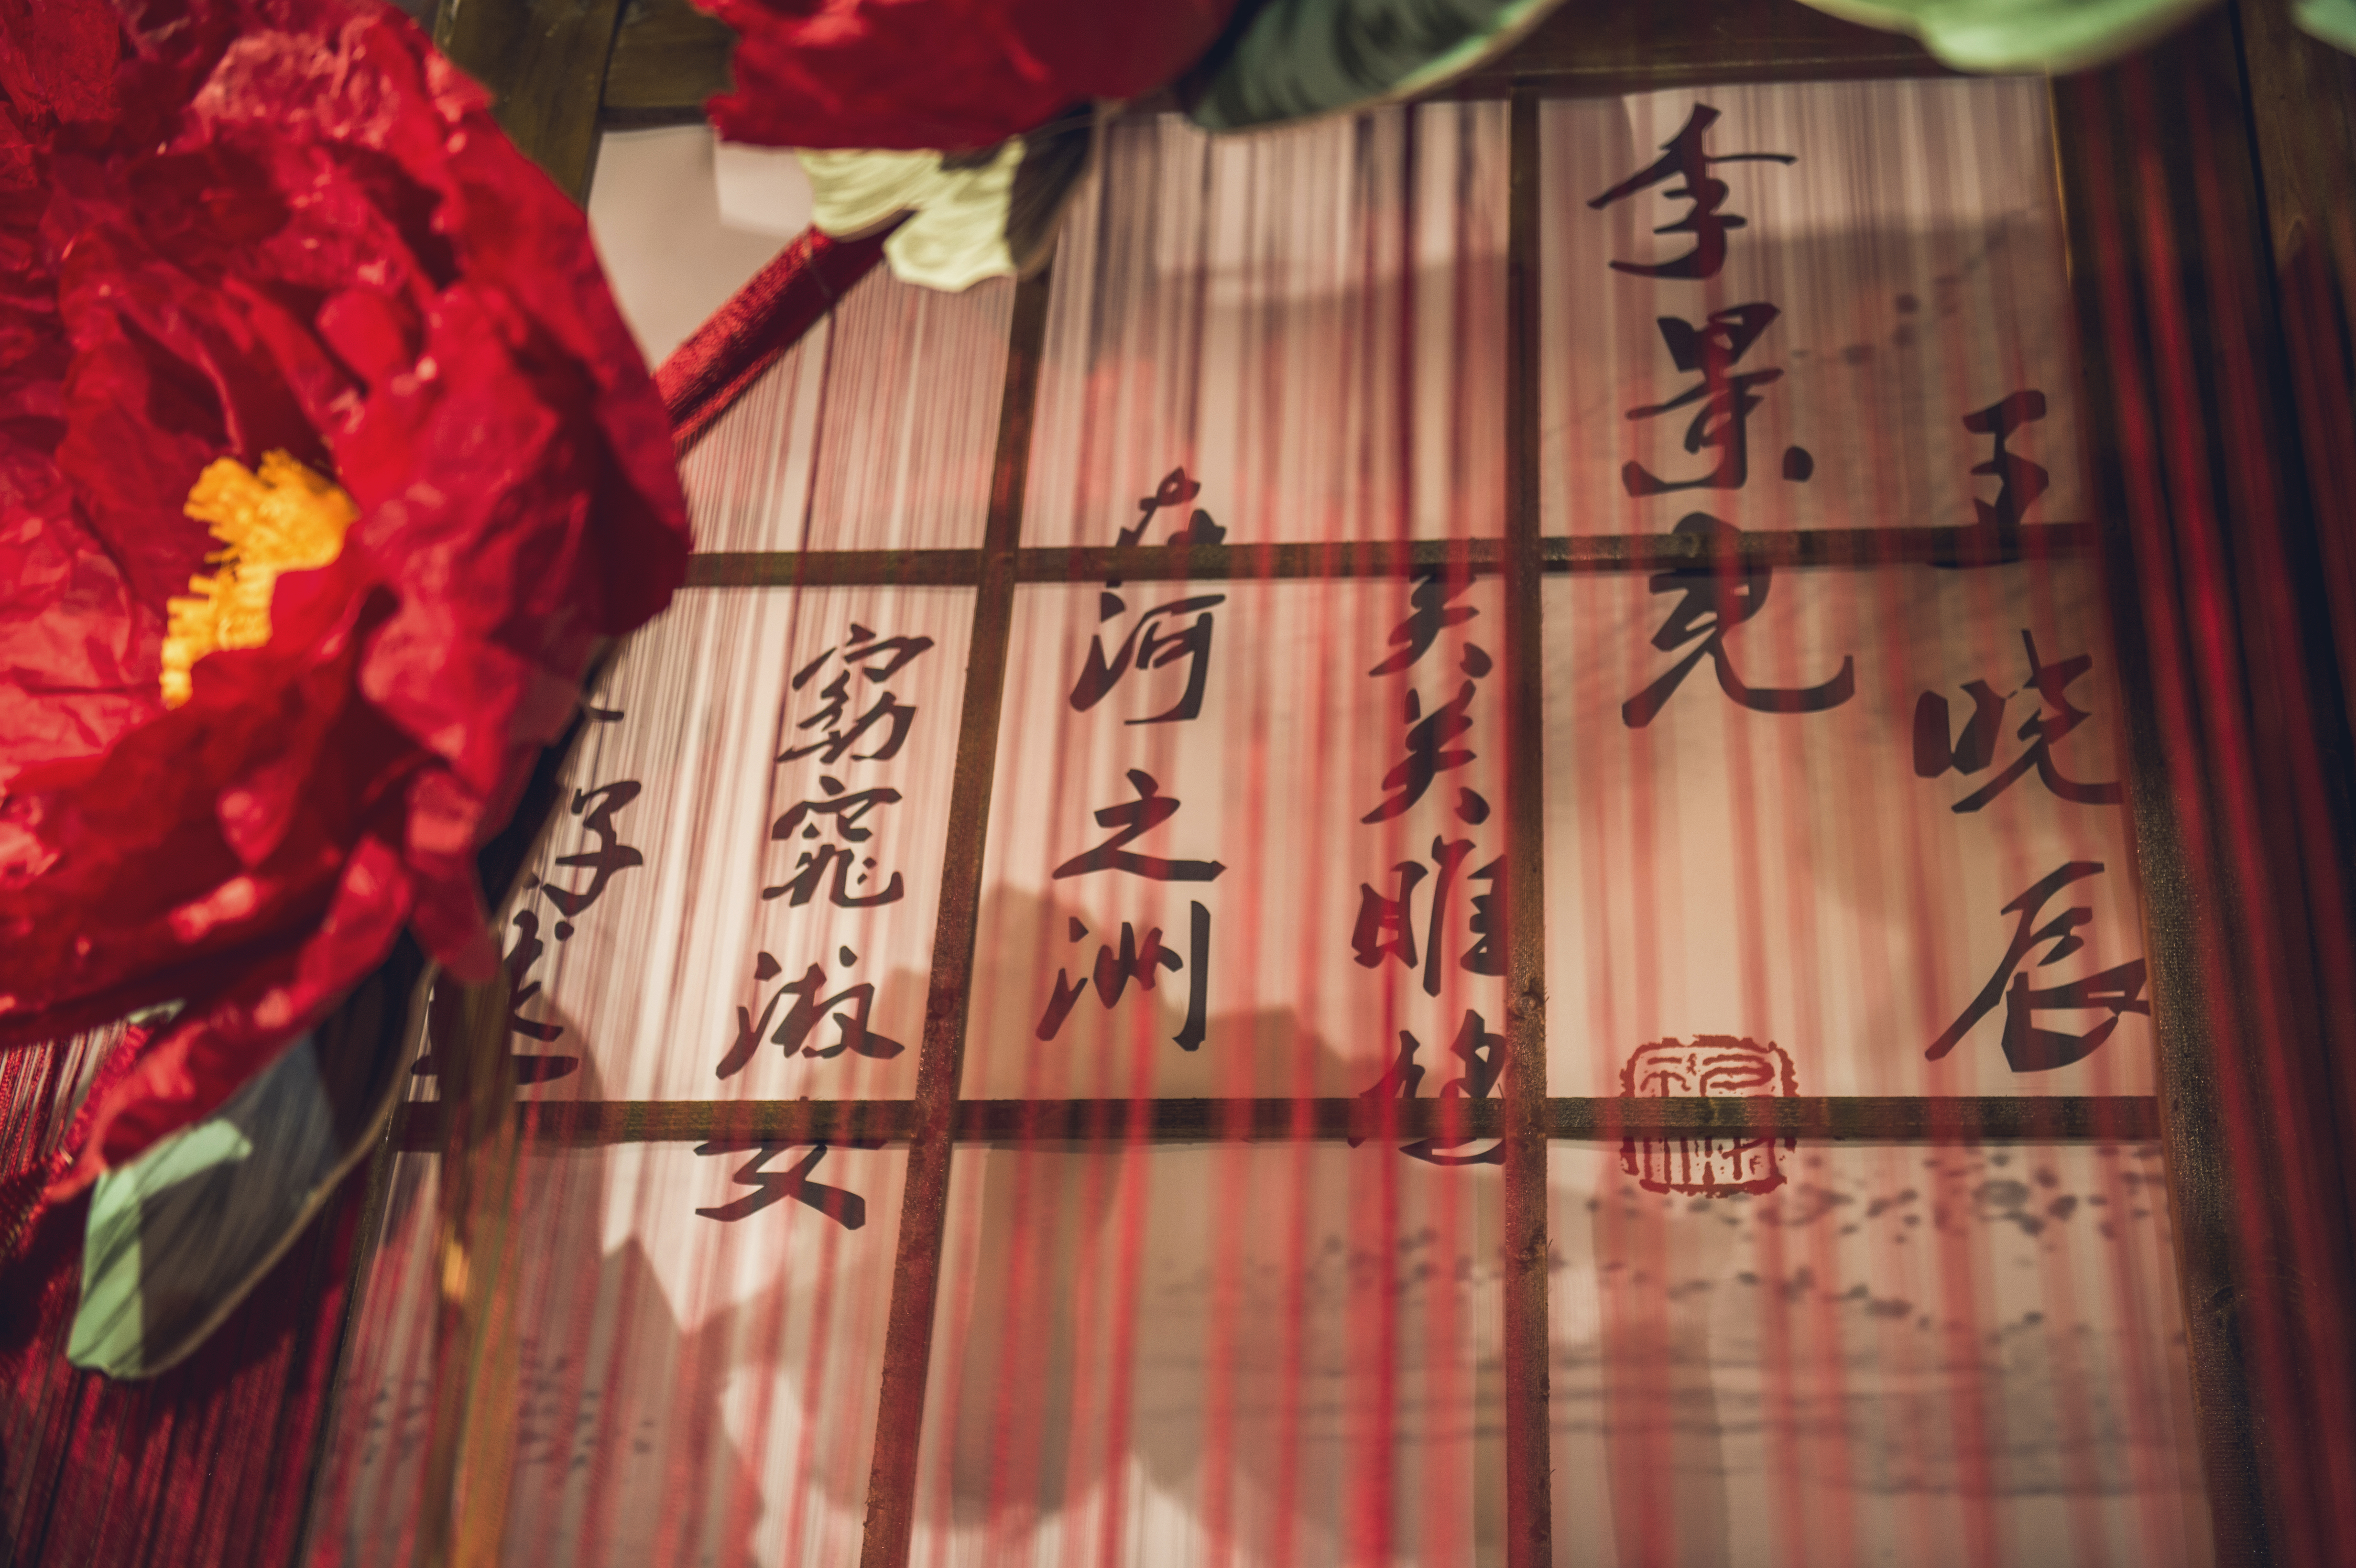 王晓辰
李景
关关雎鸠
在河之洲
窈窕淑女
好逑